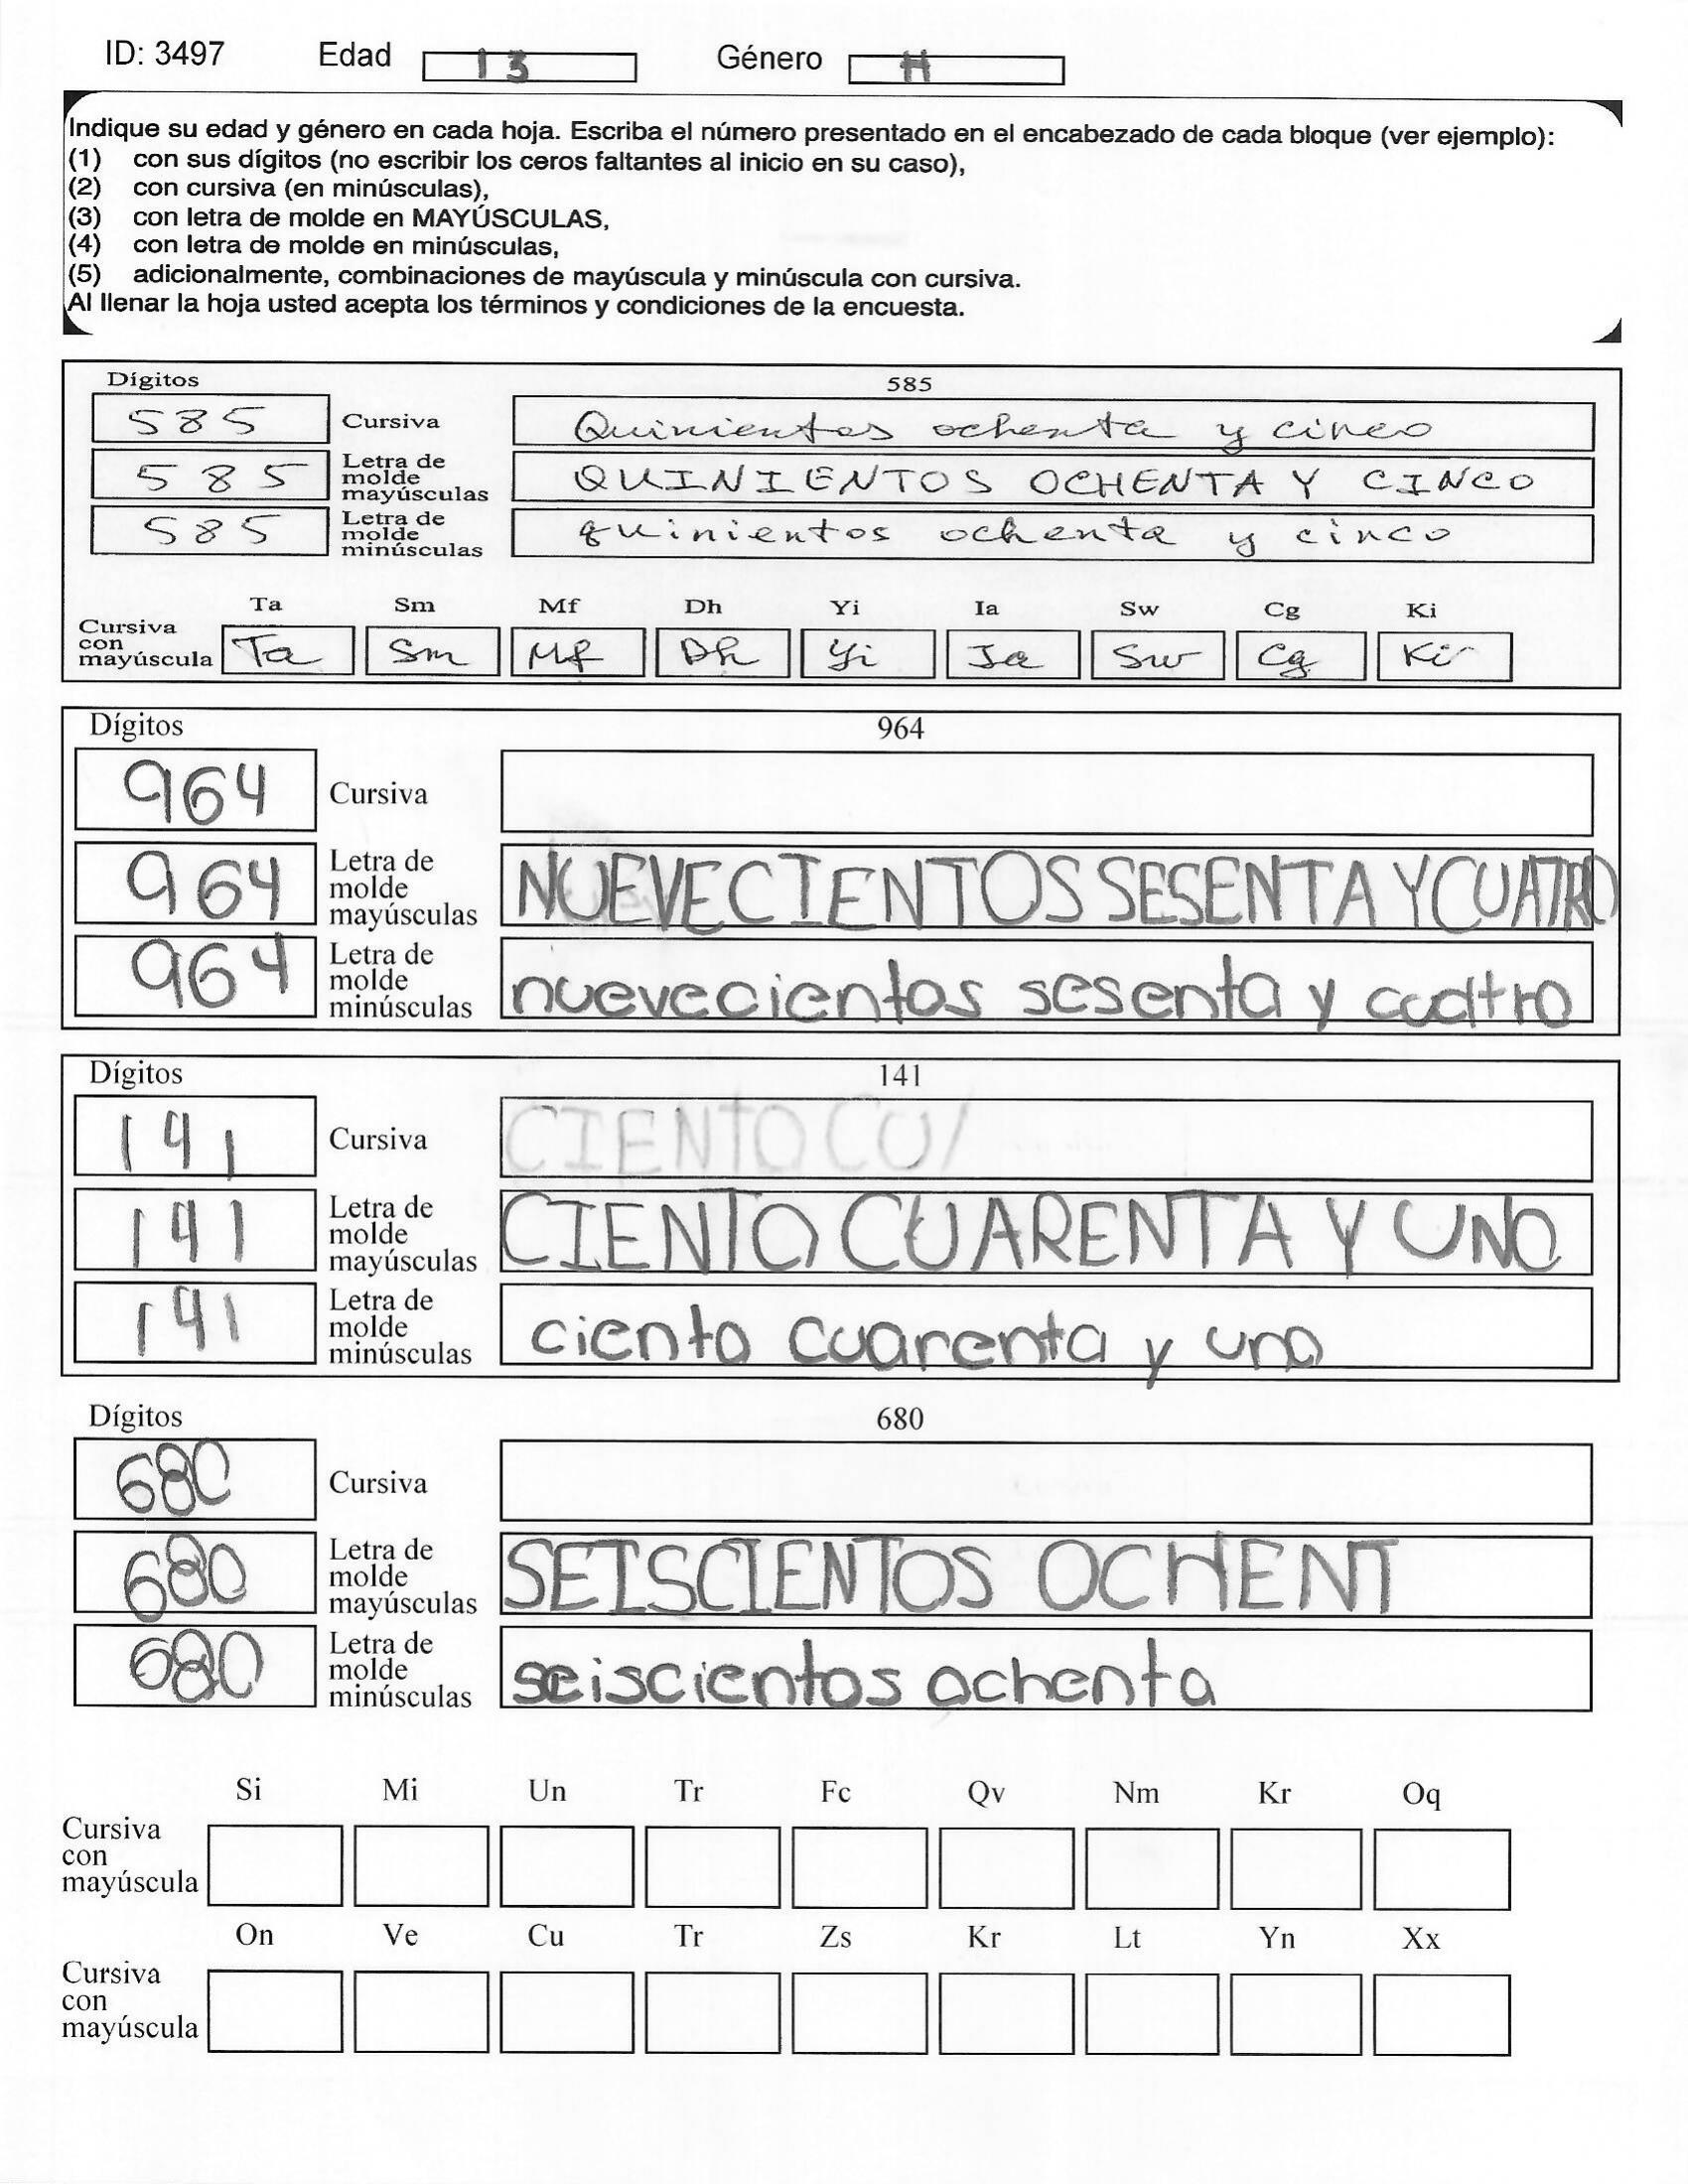 ID: 3497 Edad 13 Género H
Indique su edad y género en cada hoja. Escriba el número presentado en el encabezado de cada bloque (ver ejemplo):
(1) con sus dígitos (no escribir los ceros faltantes al inicio en su caso),
(2) con cursiva (en minúsculas),
(3) con letra de molde en MAYÚSCULAS,
(4) con letra de molde en minúsculas,
(5) adicionalmente, combinaciones de mayúscula y minúscula con cursiva.
Al llenar la hoja usted acepta los términos y condiciones de la encuesta.
Dígitos 585
585 Cursiva Quinientos ochenta y cinco
585 Letra de molde mayúsculas QUINIENTOS OCHENTA Y CINCO
585 Letra de molde minúsculas quinientos ochenta y cinco
Ta Sm Mf Dh Yi Ia Sw Cg Ki
Cursiva con mayúscula Ta Sm Mf Dh Yi Ia Sw Cg Ki
Dígitos 964
964 Cursiva
964 Letra de molde mayúsculas NUEVECIENTOS SESENTA Y CUATRO
964 Letra de molde minúsculas nuevecientos sesenta y cuatro
Dígitos 141
141 Cursiva CIENTO CU
141 Letra de molde mayúsculas CIENTO CUARENTA Y UNO
141 Letra de molde minúsculas ciento cuarenta y uno
Dígitos 680
680 Cursiva
680 Letra de molde mayúsculas SEISCIENTOS OCHENT
680 Letra de molde minúsculas seiscientos ochenta
Si Mi Un Tr Fc Qv Nm Kr Oq
Cursiva con mayúscula
On Ve Cu Tr Zs Kr Lt Yn Xx
Cursiva con mayúscula